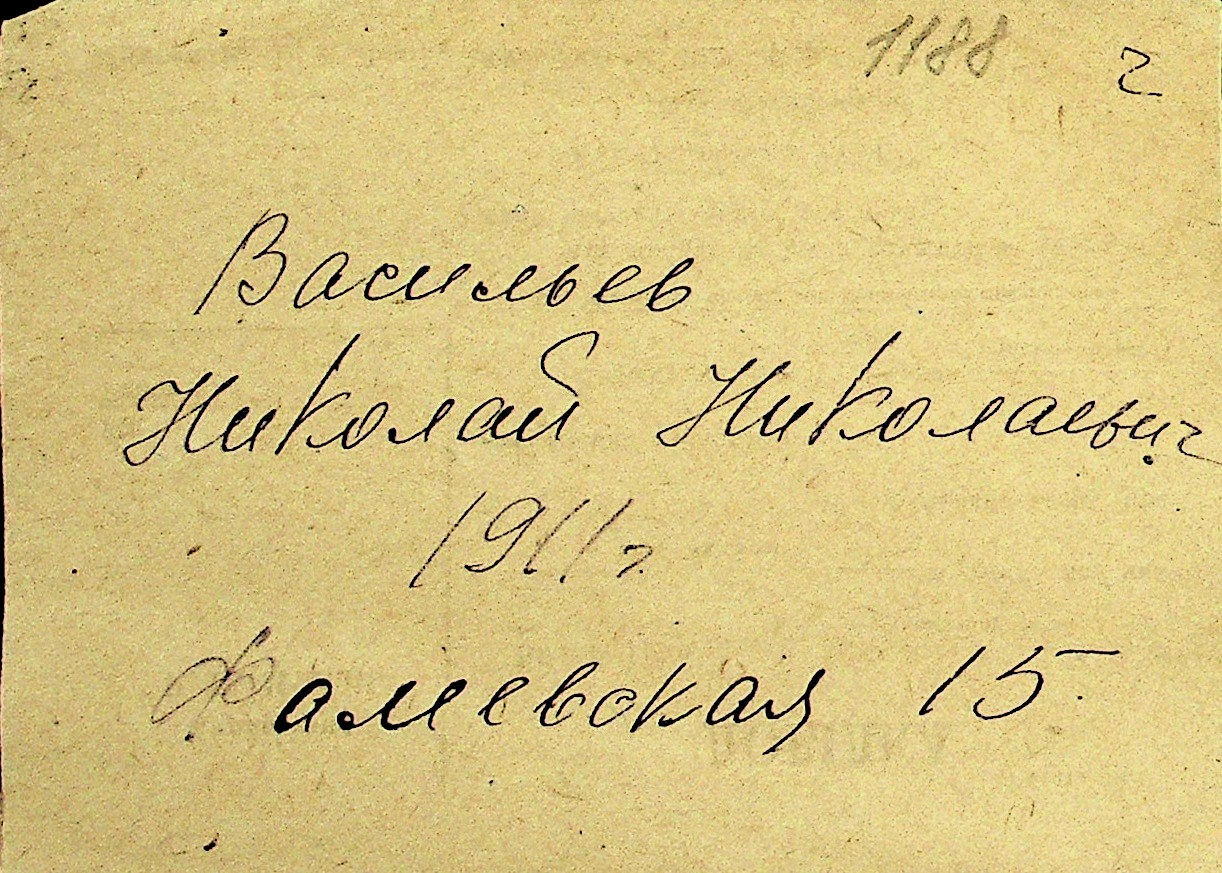 1188 2
Васильев
Николай Николаевич
1911 г.
Фалевская 15